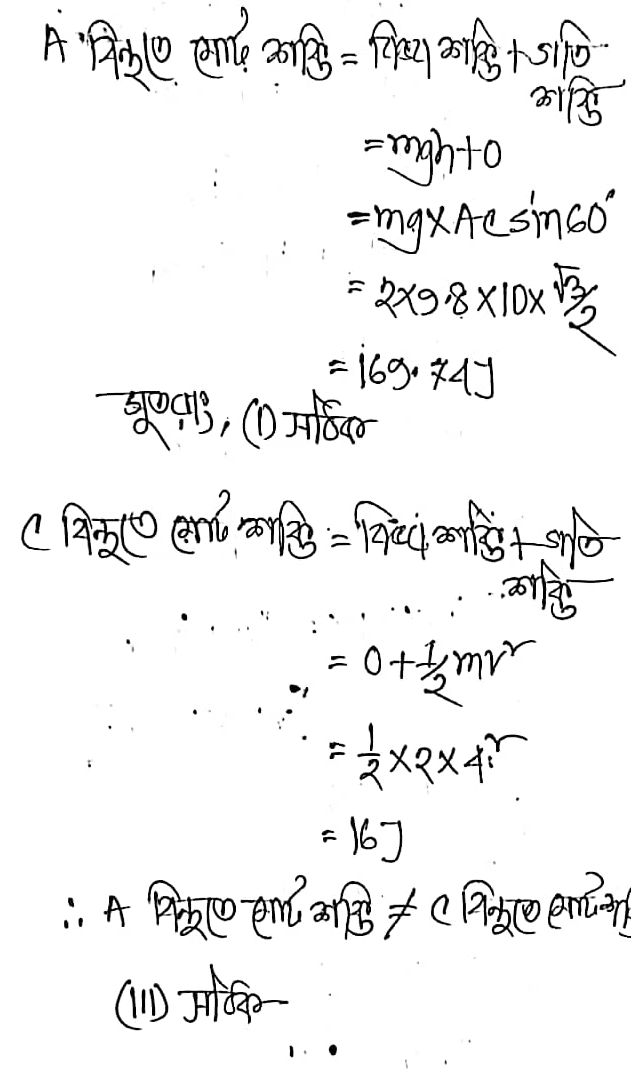 A বিন্দুতে মোট শক্তি = বিভব শক্তি + গতি
শক্তি
= mgh + 0
= mg × AC sin 60°
= 2 × 9.8 × 10 × √3/2
= 169.74J
সুতরাং, (I) সঠিক
C বিন্দুতে মোট শক্তি = বিভব শক্তি + গতি
শক্তি
= 0 + 1/2 mv²
= 1/2 × 2 × 4²
= 16J
∴ A বিন্দুতে মোট শক্তি ≠ C বিন্দুতে মোট
(III) সঠিক